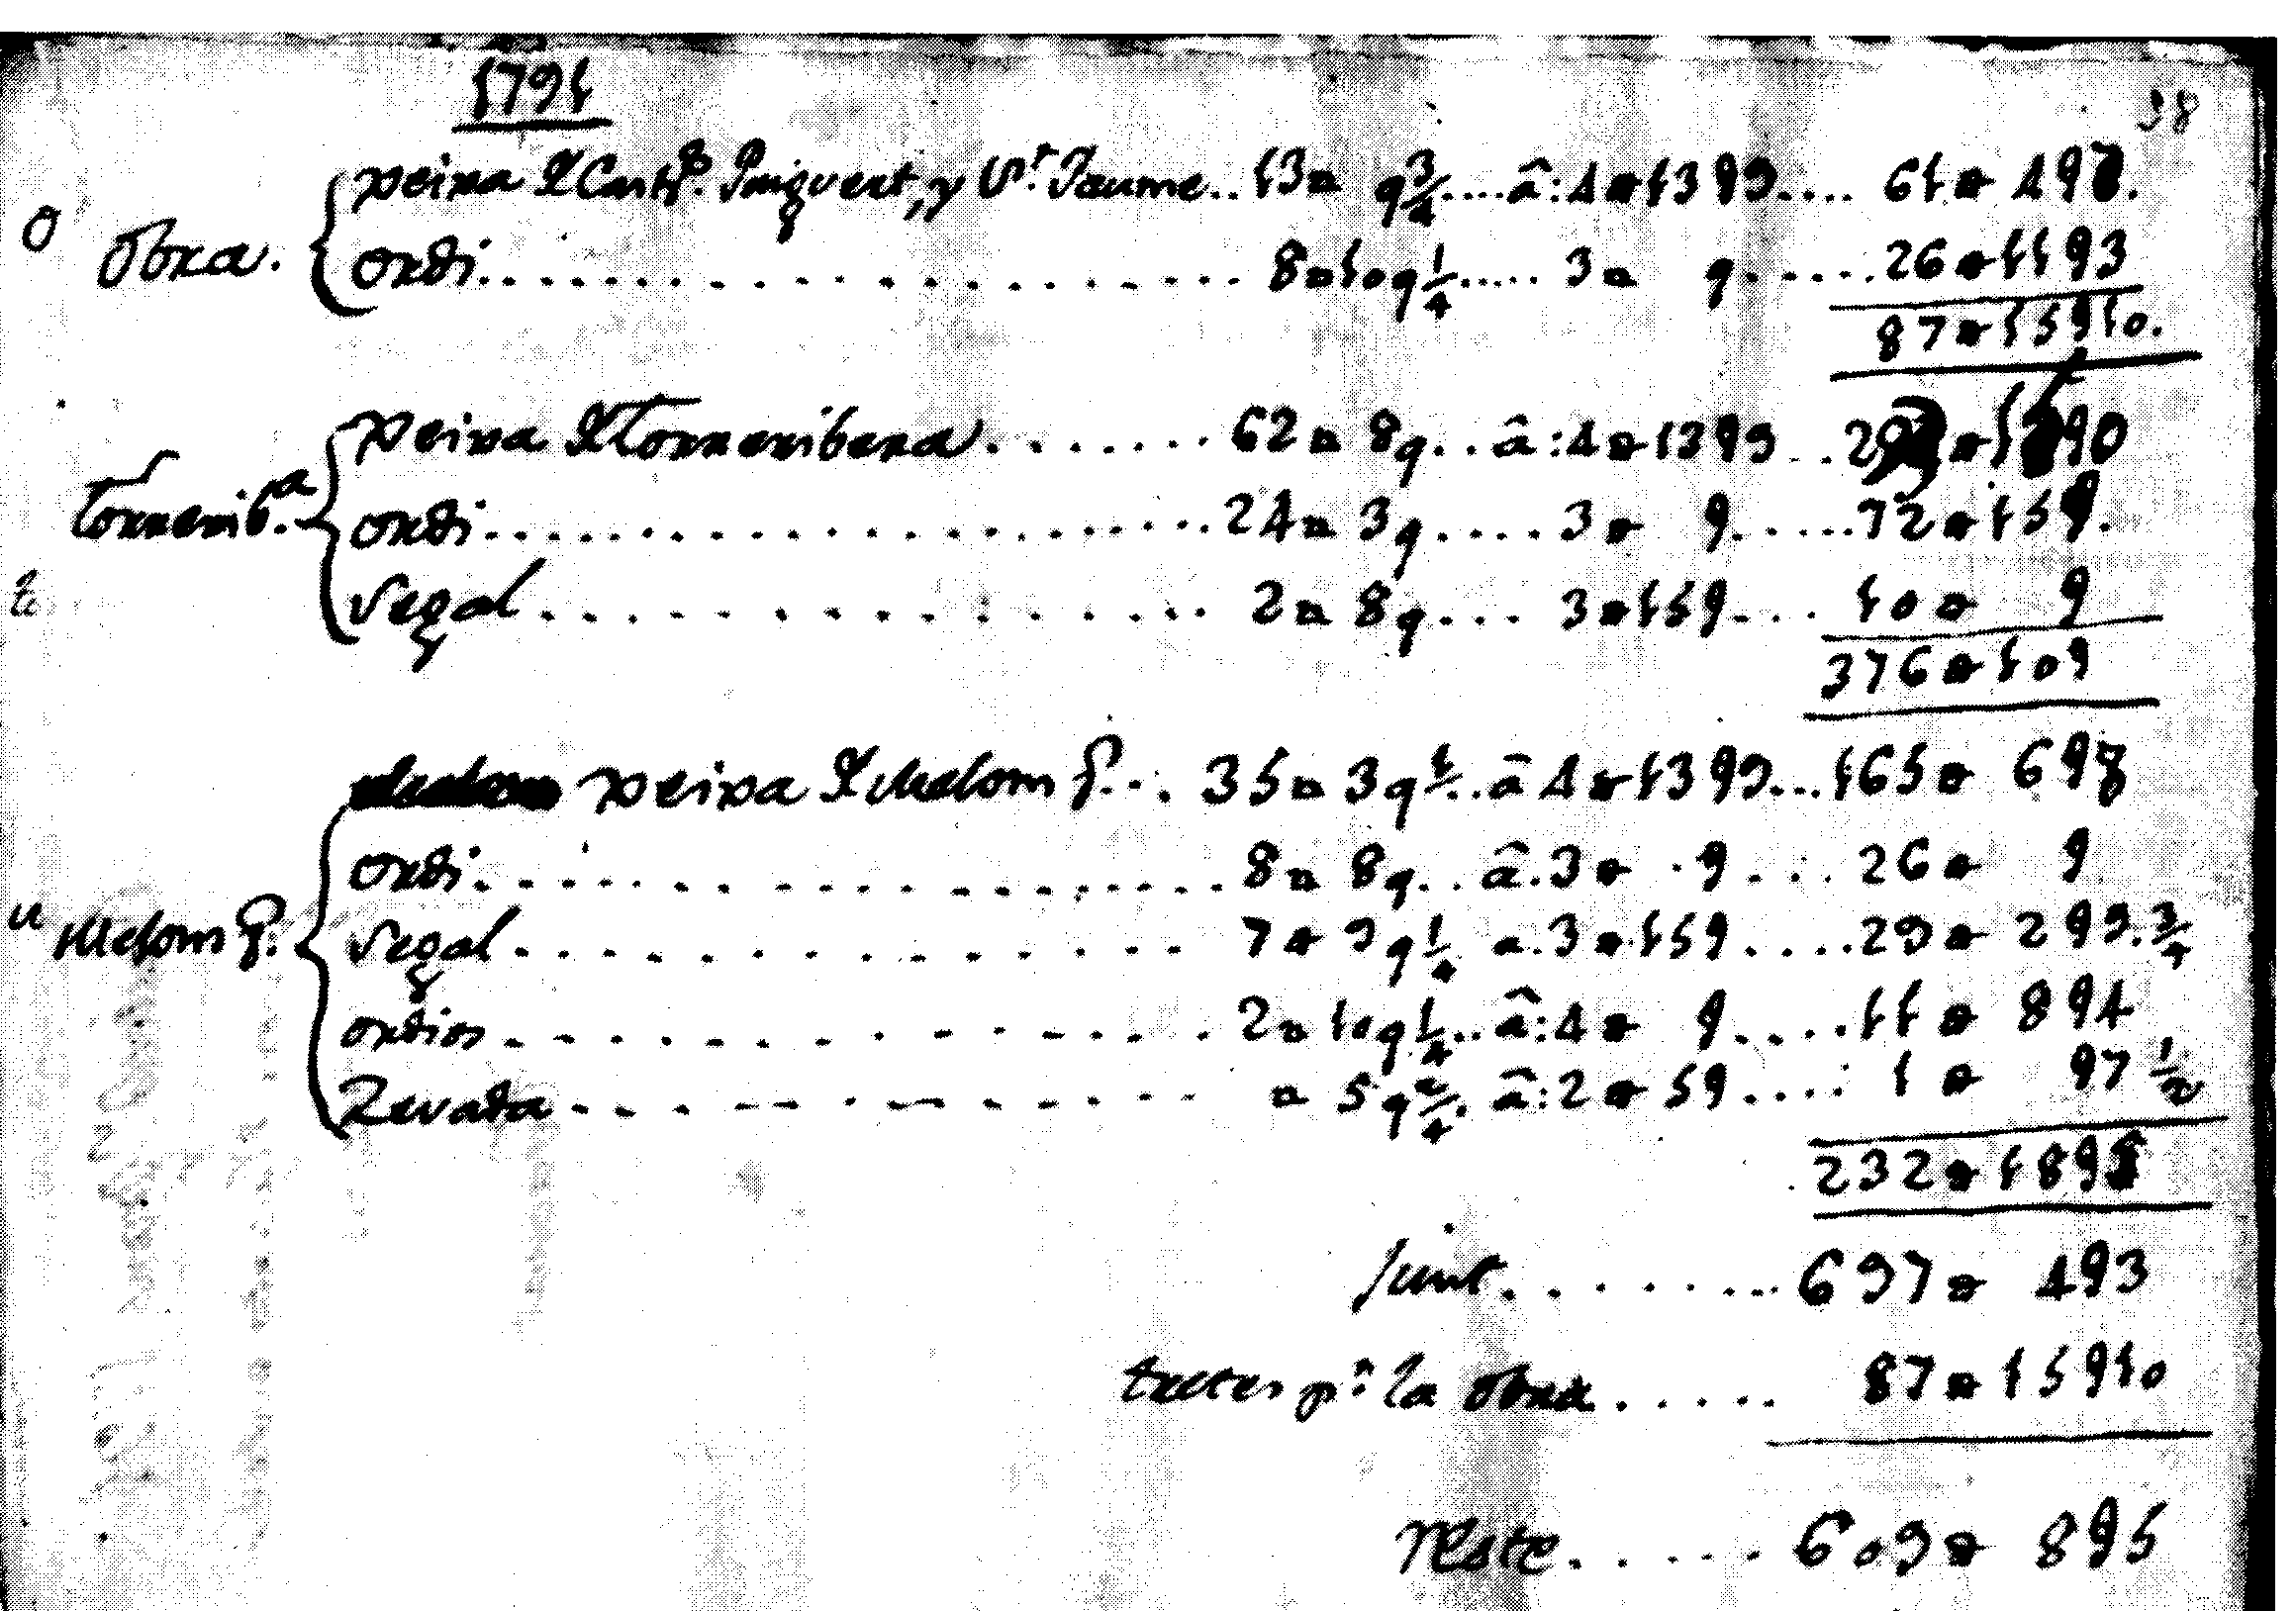 1791
38
O Obra. { xeixa d Cartª. Puigvert, y St. Jaume.. 13a q 3/4.... â: 4a1399.... 61a 498.
ordi. . . . . . . . . . . 8a10q 1/4..... 3a 9. . . . . 26a1193
87a15910.
Tornerib.a { xeixa d Torneribera. . . . . . . 62a 8q. . â: 4a1399 . . 29 a15 90
ordi. . . . . . . . . . . 24a 3q. . . . 3a 9. . . . . 72a159.
segal . . . . . . . . . . . 2a 8q. . . 3a159. . . . 10a 9
376a109
xeixa d Melom P. . . 35a 3q 1/. . . â 4a1399. . . 165a 698
u Melom P. { ordi. . . . . . . . . . . 8a 8q. . â. 3a 9. . . . 26a 9
segal . . . . . . . . . . . 7a 9q 1/4 a. 3a159. . . . . 29a 299. 3/4
ordios . . . . . . . . . . . 2a 10q 1/4.. â: 4a 9. . . . 11a 894
Zevada . . . . . . . . . a 5q 2/4. â: 2a 59. . . . : 1a 97 1/2
232a1898
Junt. . . . . . . . 697a 493
tretes pª. la obra . . . . . 87a15910
Reste. . . . . 609a 895